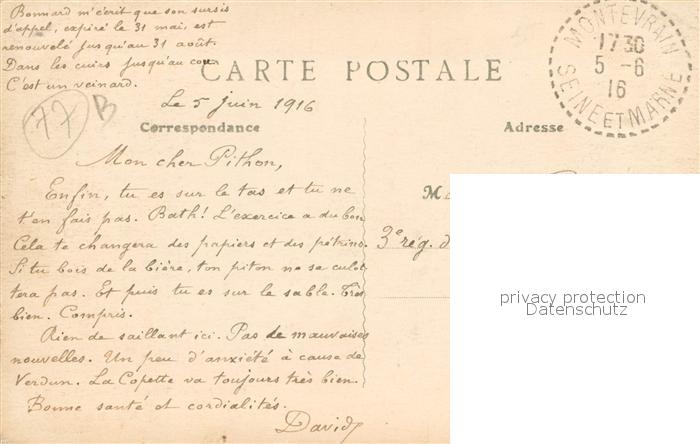 Bonnard m'écrit que son sursis
d'appel, expiré le 31 mai, est
renouvelé jusqu'au 31 août.
Dans les cuirs jusqu'au cou.
C'est un veinard.
CARTE POSTALE
MONTEVRAIN
1730
5-6
16
SEINE ET MARNE
77
B
Le 5 juin 1916
Correspondance
Adresse
Mon cher Pithon,
Enfin, tu es sur le tas et tu ne
t'en fais pas. Bath! L'exercice a du bon
Cela te changera des papiers et des pétrins.
Si tu bois de la bière, ton piton ne se culot-
tera pas. Et puis tu es sur le sable. Très
bien. Compris.
Rien de saillant ici. Pas de mauvaises
nouvelles. Un peu d'anxiété à cause de
Verdun. La Copette va toujours très bien.
Bonne santé et cordialités.
David
M
3e rég. d
privacy protection
Datenschutz